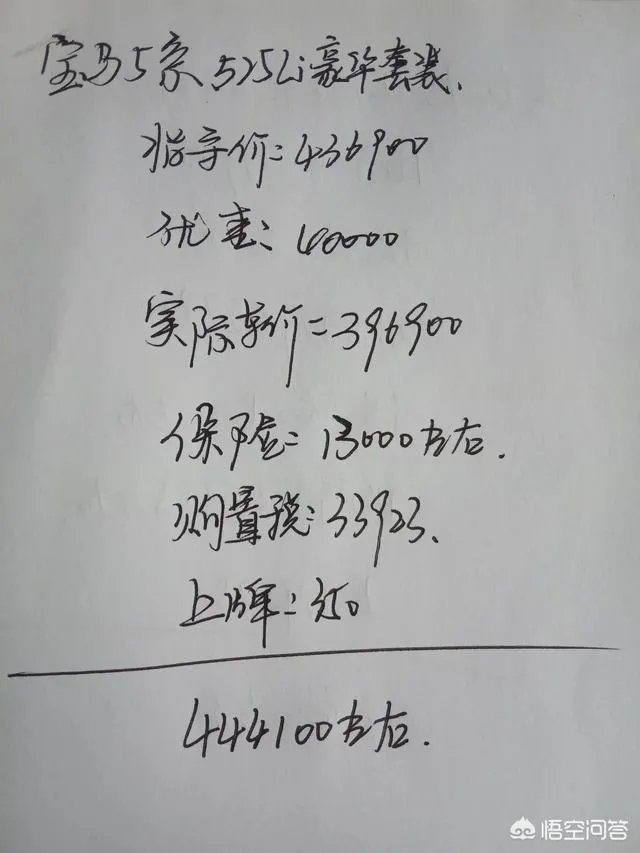 宝马5系525Li豪华套装.
指导价:436900
优惠:40000
实际车价=396900
保险=13000左右.
购置税:33923.
上牌:350
444100左右.
悟空问答